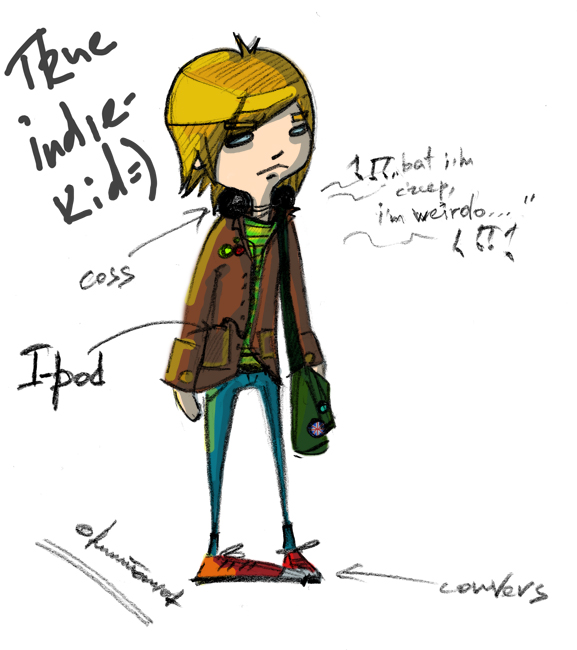 True
indie-
kid=)
„bat i'm
creep,
i'm weirdo..."
coss
I-pod
convers